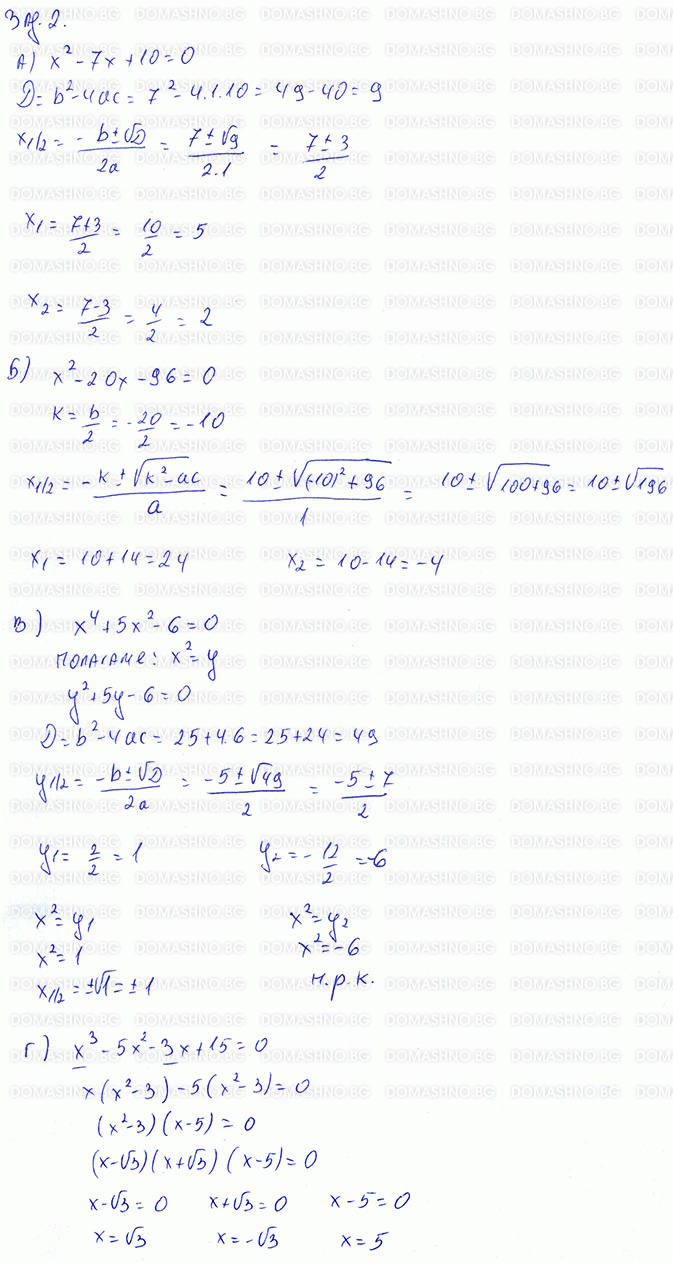 Зад. 2.
А) x² - 7x + 10 = 0
D = b² - 4ac = 7² - 4.1.10 = 49 - 40 = 9
x1/2 = -b ± √D / 2a = 7 ± √9 / 2.1 = 7 ± 3 / 2
x1 = 7+3 / 2 = 10 / 2 = 5
x2 = 7-3 / 2 = 4 / 2 = 2
Б) x² - 20x - 96 = 0
K = b / 2 = -20 / 2 = -10
x1/2 = -K ± √(K² - ac) / a = 10 ± √((-10)² + 96) / 1 = 10 ± √(100 + 96) = 10 ± √196
x1 = 10 + 14 = 24 x2 = 10 - 14 = -4
В) x⁴ + 5x² - 6 = 0
полагаме: x² = y
y² + 5y - 6 = 0
D = b² - 4ac = 25 + 4.6 = 25 + 24 = 49
y1/2 = -b ± √D / 2a = -5 ± √49 / 2 = -5 ± 7 / 2
y1 = 2 / 2 = 1 y2 = -12 / 2 = -6
x² = y1 x² = y2
x² = 1 x² = -6
x1/2 = ±√1 = ±1 н.р.к.
г) x³ - 5x² - 3x + 15 = 0
x(x² - 3) - 5(x² - 3) = 0
(x² - 3)(x - 5) = 0
(x - √3)(x + √3)(x - 5) = 0
x - √3 = 0 x + √3 = 0 x - 5 = 0
x = √3 x = -√3 x = 5
DOMASHNO.BG